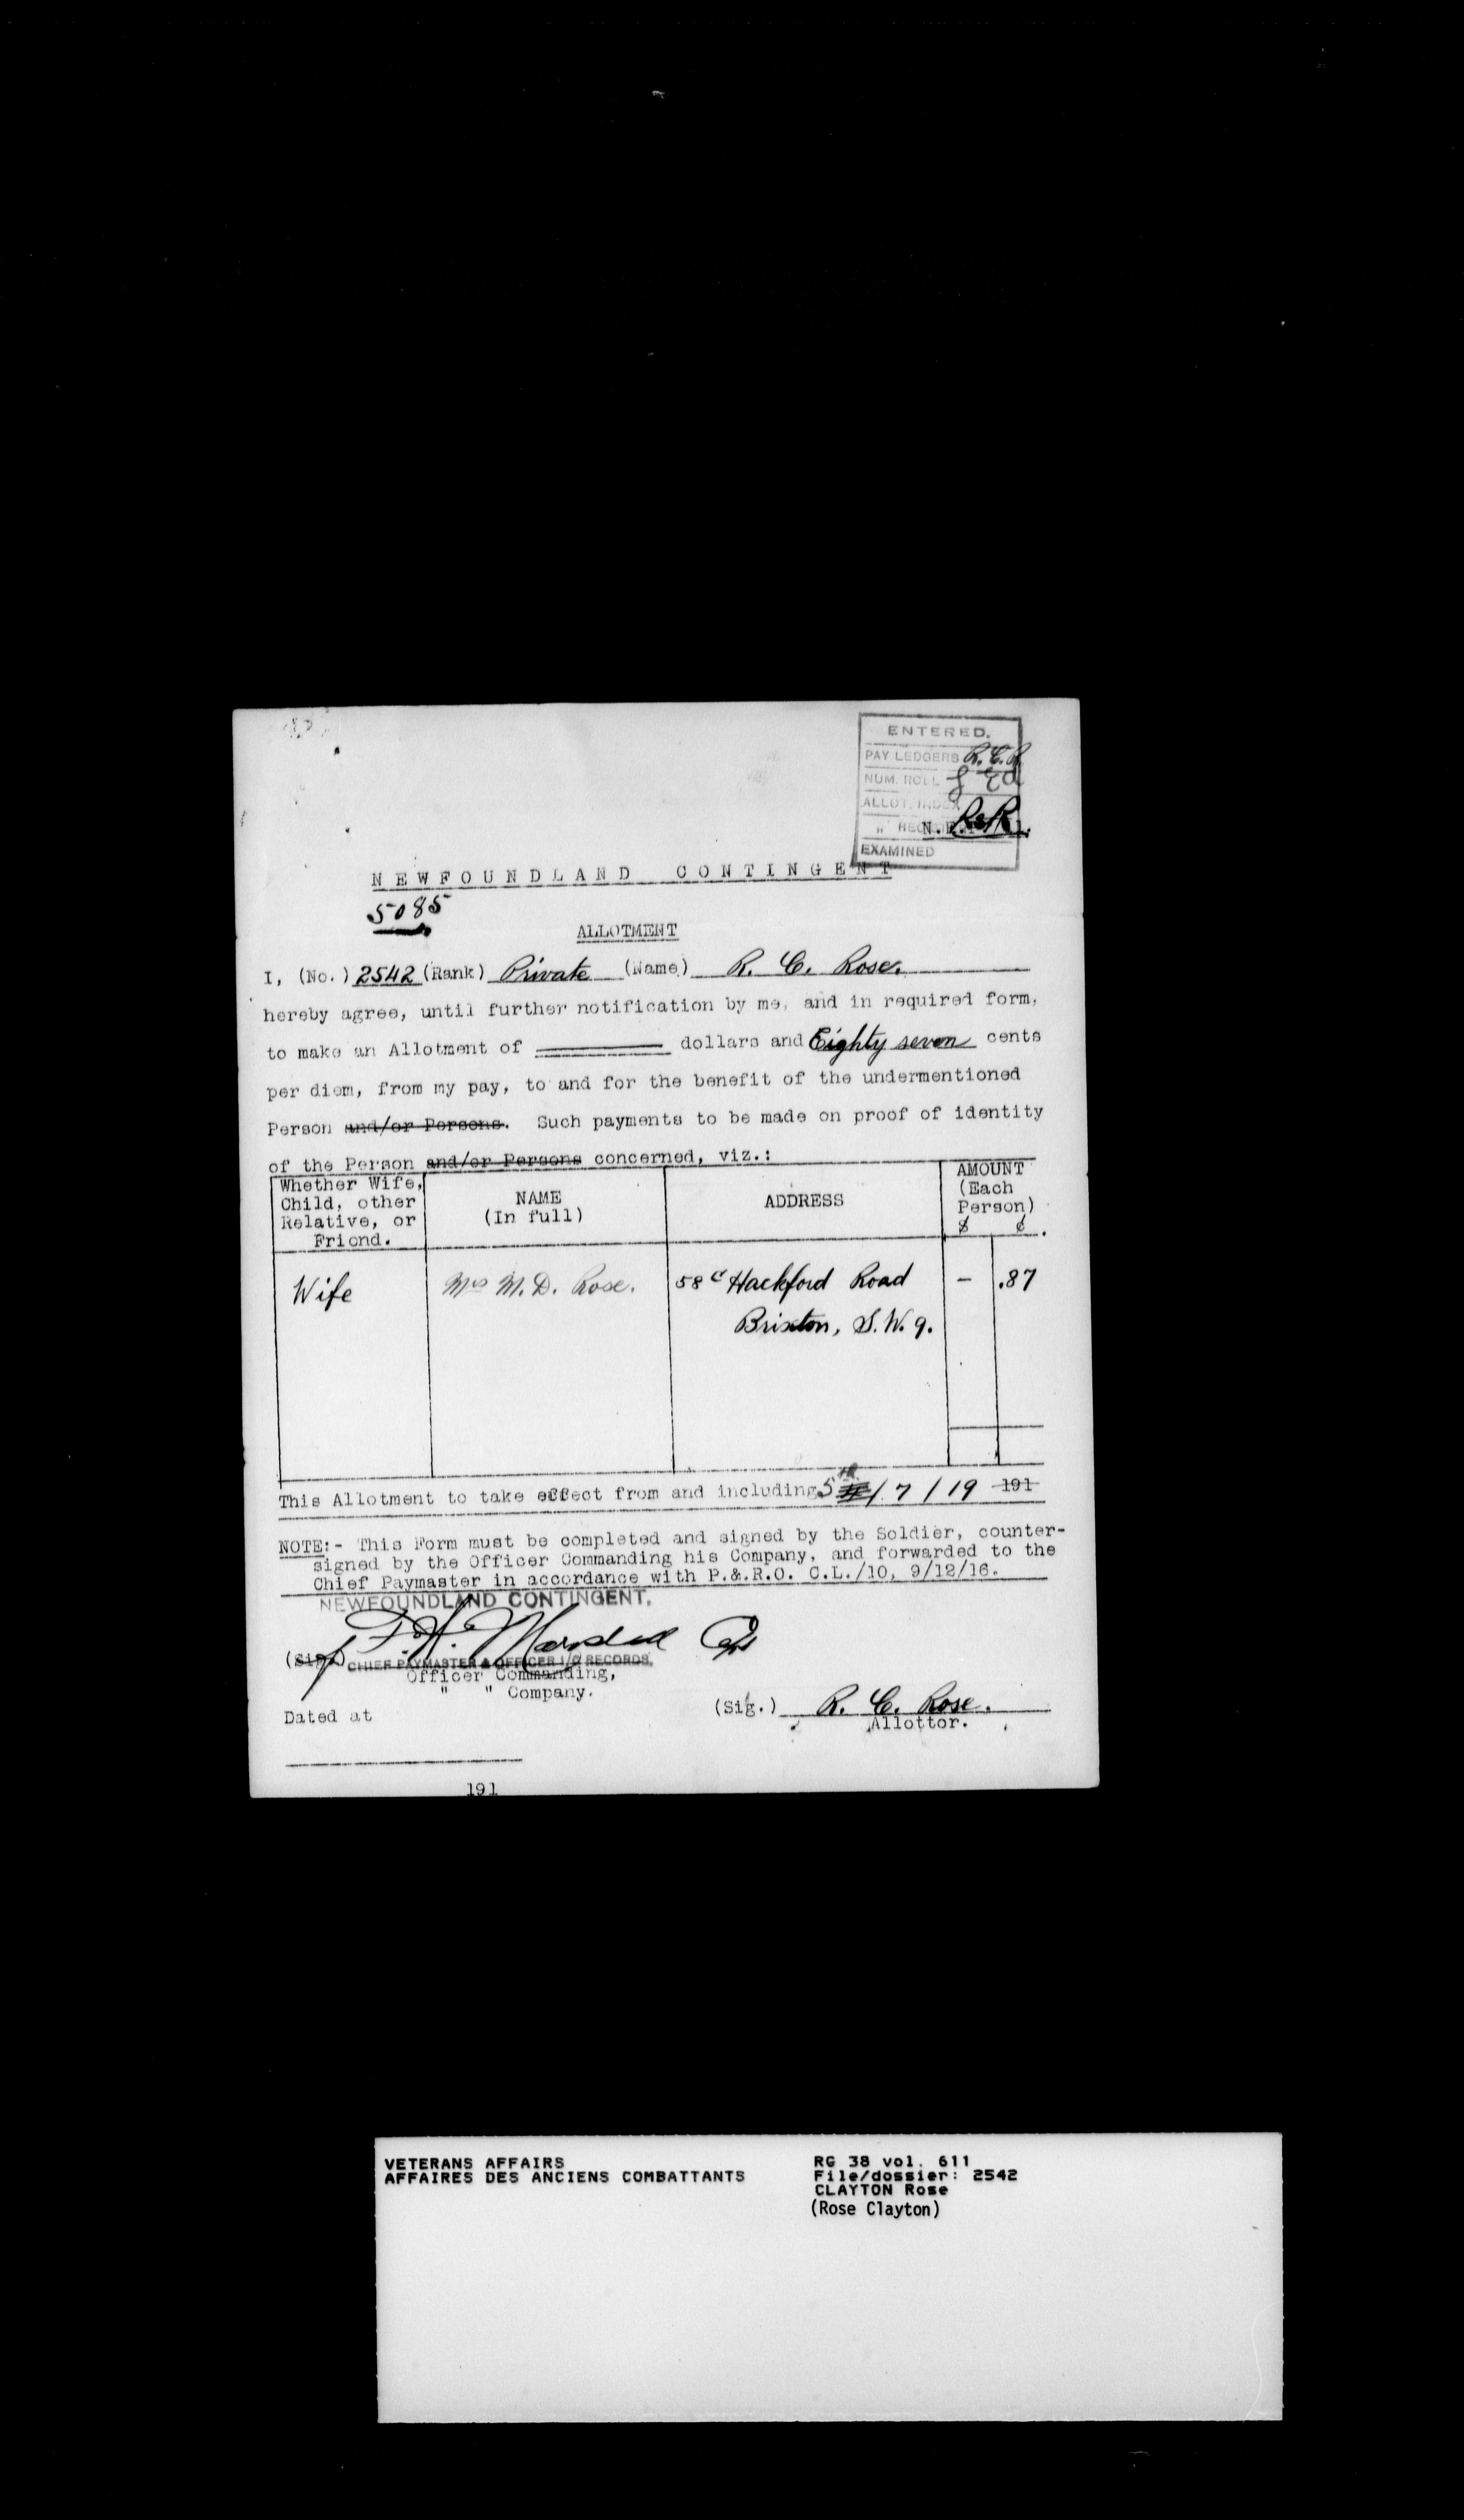 ENTERED.
PAY LEDGERS R.C.R
NUM. ROLL
ALLOT. INDEX
" R.C.R
EXAMINED
NEWFOUNDLAND CONTINGENT
5085
ALLOTMENT
I, (No.) 2542 (Rank) Private (Name) R. C. Rose.
hereby agree, until further notification by me, and in required form,
to make an Allotment of dollars and Eighty seven cents
per diem, from my pay, to and for the benefit of the undermentioned
Person and/or Persons. Such payments to be made on proof of identity
of the Person and/or Persons concerned, viz.:
Whether Wife,
Child, other
Relative, or
Friend.
NAME
(In full)
ADDRESS
AMOUNT
(Each
Person)
$ ¢.
Wife Mrs M. D. Rose. 58c Hackford Road - .87
Brixton, S.W. 9.
This Allotment to take effect from and including 5th / 7 / 19 191
NOTE:- This Form must be completed and signed by the Soldier, counter-
signed by the Officer Commanding his Company, and forwarded to the
Chief Paymaster in accordance with P.&.R.O. C.L./10, 9/12/16.
NEWFOUNDLAND CONTINGENT.
(Sig.)
CHIEF PAYMASTER & OFFICER I/C RECORDS.
Officer Commanding,
" " Company.
(Sig.) R. C. Rose.
Allottor.
Dated at
191
VETERANS AFFAIRS
AFFAIRES DES ANCIENS COMBATTANTS
RG 38 vol. 611
File/dossier: 2542
CLAYTON Rose
(Rose Clayton)